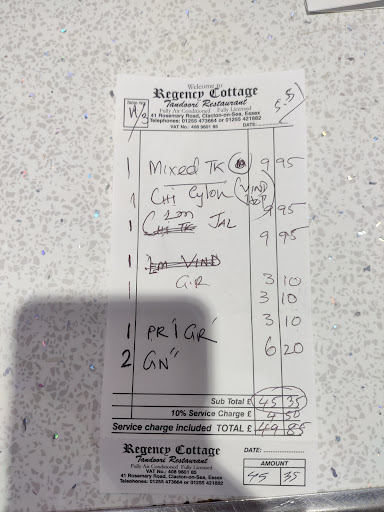 Welcome to
Regency Cottage
Tandoori Restaurant
Fully Air Conditioned Fully Licensed
41 Rosemary Road, Clacton-on-Sea, Essex
Telephones: 01255 473664 or 01255 421882
VAT No.: 408 9601 85 DATE:
Table No.
W/3
5.5
1 Mixed TK 9 95
1 CHI Cylon VIND HOT 9 95
1 Lam JAL 9 95
CHI TK
1 LM VIND
G.R 3 10
1 3 10
1 PRI GR 3 10
2 GN" 6 20
Sub Total £ 45 35
10% Service Charge £ 4 50
Service charge included TOTAL £ 49 85
Regency Cottage
Tandoori Restaurant
Fully Air Conditioned Fully Licensed
VAT No.: 408 9601 85
41 Rosemary Road, Clacton-on-Sea, Essex
Telephones: 01255 473664 or 01255 421882
DATE: ..............
AMOUNT
45 35